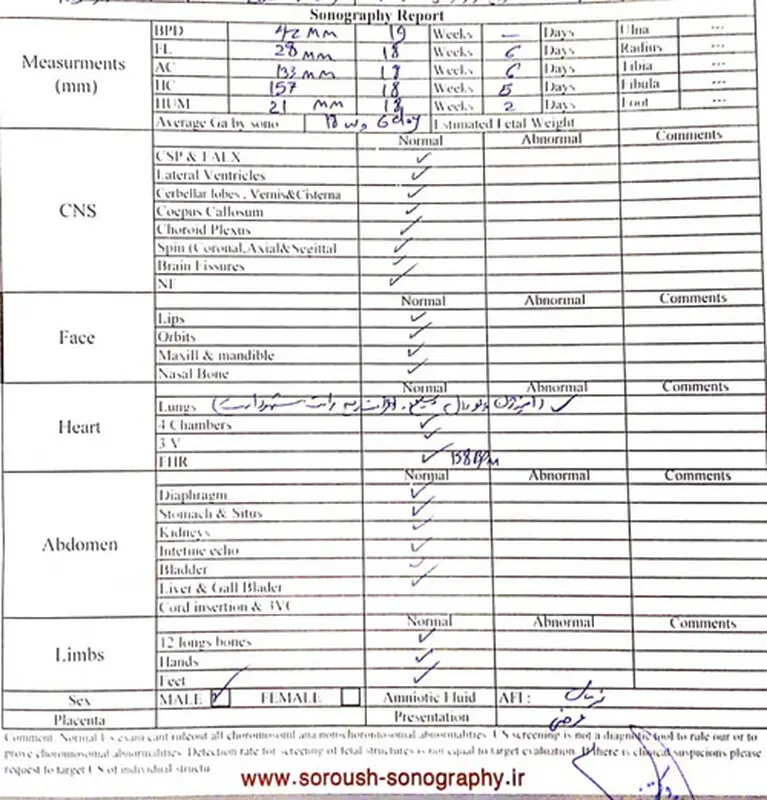 Sonography Report
Measurments (mm)
BPD 42 mm 19 Weeks — Days Ulna ---
FL 28 mm 18 Weeks 6 Days Radius ---
AC 133 mm 18 Weeks 6 Days Tibia ---
HC 157 18 Weeks 5 Days Fibula ---
HUM 21 mm 18 Weeks 2 Days Foot ---
Average Ga by sono 18 w, 6 day Estimated Fetal Weight
CNS
Normal Abnormal Comments
CSP & FALX ✓
Lateral Ventricles ✓
Cerbellar lobes , Vernis&Cisterna ✓
Coepus Callosum ✓
Choroid Plexus ✓
Spin (Coronal,Axial&Segittal ✓
Brain Fissures ✓
NF ✓
Face
Normal Abnormal Comments
Lips ✓
Orbits ✓
Maxill & mandible ✓
Nasal Bone ✓
Heart
Normal Abnormal Comments
Lungs ✓
4 Chambers ✓
3 V ✓
FHR ✓ 158 BPM
Abdomen
Normal Abnormal Comments
Diaphragm ✓
Stomach & Situs ✓
Kidneys ✓
Inteline echo ✓
Bladder ✓
Liver & Gall Blader ✓
Cord insertion & 3VC
Limbs
Normal Abnormal Comments
12 longs bones ✓
Hands ✓
Feet ✓
Sex MALE ✓ FEMALE Amniotic Fluid AFI : نرمال
Placenta Presentation عرضی
Comment: Normal Us exam cant ruleout all choromosomil ana non-chorontosomal abnormalities. US screening is not a diagnetic tool to rule our or to
prove choromosomal abnormalities. Detection rate for screening of fetal structures is not equal to target evaluation. If there is clinical suspacions please
request to target US of individual structu
www.soroush-sonography.ir